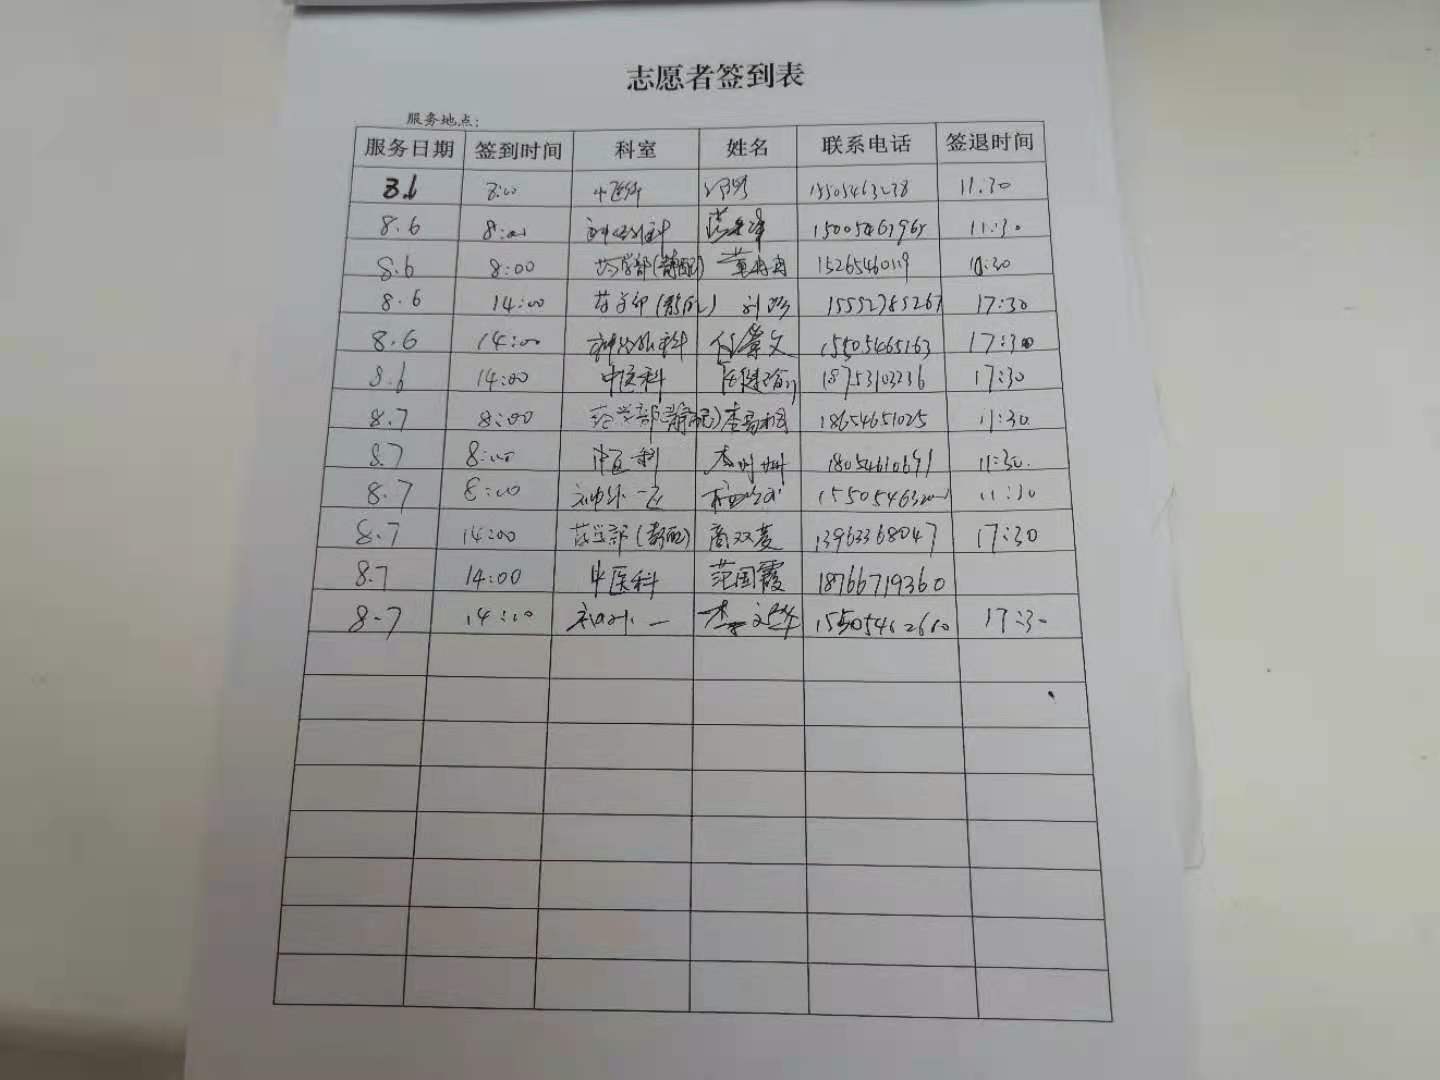 志愿者签到表
服务地点:
服务日期 签到时间 科室 姓名 联系电话 签退时间
8.6 8:00 中医科 15505463238 11:30
8.6 8:00 神经外科 11:30
8.6 8:00 药学部(静配) 董冉冉 15265460119 11:30
8.6 14:00 药学部(静配) 15552785267 17:30
8.6 14:00 神经外科 任景文 15505465163 17:30
8.6 14:00 中医科 18753103236 17:30
8.7 8:00 药学部(静配) 18654651025 11:30
8.7 8:00 中医科 18054610691 11:30.
8.7 8:00 神外一区 11:30
8.7 14:00 药学部(静配) 商双菱 13963368047 17:30
8.7 14:00 中医科 范国霞 18766719360
8.7 14:00 神外一 李文华 15505462660 17:30